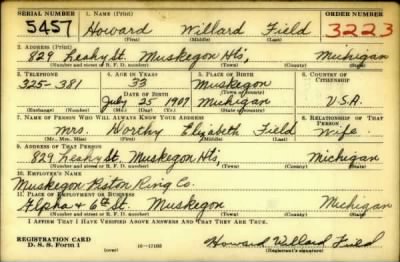 SERIAL NUMBER 1. NAME (Print) ORDER NUMBER
5457 Howard Willard Field 3223
(First) (Middle) (Last)
2. ADDRESS (Print)
829 Leahy St. Muskegon Hts, Michigan
(Number and street or R. F. D. number) (Town) (County) (State)
3. TELEPHONE 4. AGE IN YEARS 5. PLACE OF BIRTH 6. COUNTRY OF CITIZENSHIP
325-381 33 Muskegon
DATE OF BIRTH (Town or county)
July 25 1907 Michigan U.S.A.
(Exchange) (Number) (Mo.) (Day) (Yr.) (State or country)
7. NAME OF PERSON WHO WILL ALWAYS KNOW YOUR ADDRESS 8. RELATIONSHIP OF THAT PERSON
Mrs. Dorthy Elizabeth Field Wife
(Mr., Mrs., Miss) (First) (Middle) (Last)
9. ADDRESS OF THAT PERSON
829 Leahy St. Muskegon Hts, Michigan
(Number and street or R. F. D. number) (Town) (County) (State)
10. EMPLOYER'S NAME
Muskegon Piston Ring Co.
11. PLACE OF EMPLOYMENT OR BUSINESS
Alpha & 6th St. Muskegon Michigan
(Number and street or R. F. D. number) (Town) (County) (State)
I AFFIRM THAT I HAVE VERIFIED ABOVE ANSWERS AND THAT THEY ARE TRUE.
REGISTRATION CARD
D. S. S. Form 1 (over) Howard Willard Field
(Registrant's signature)